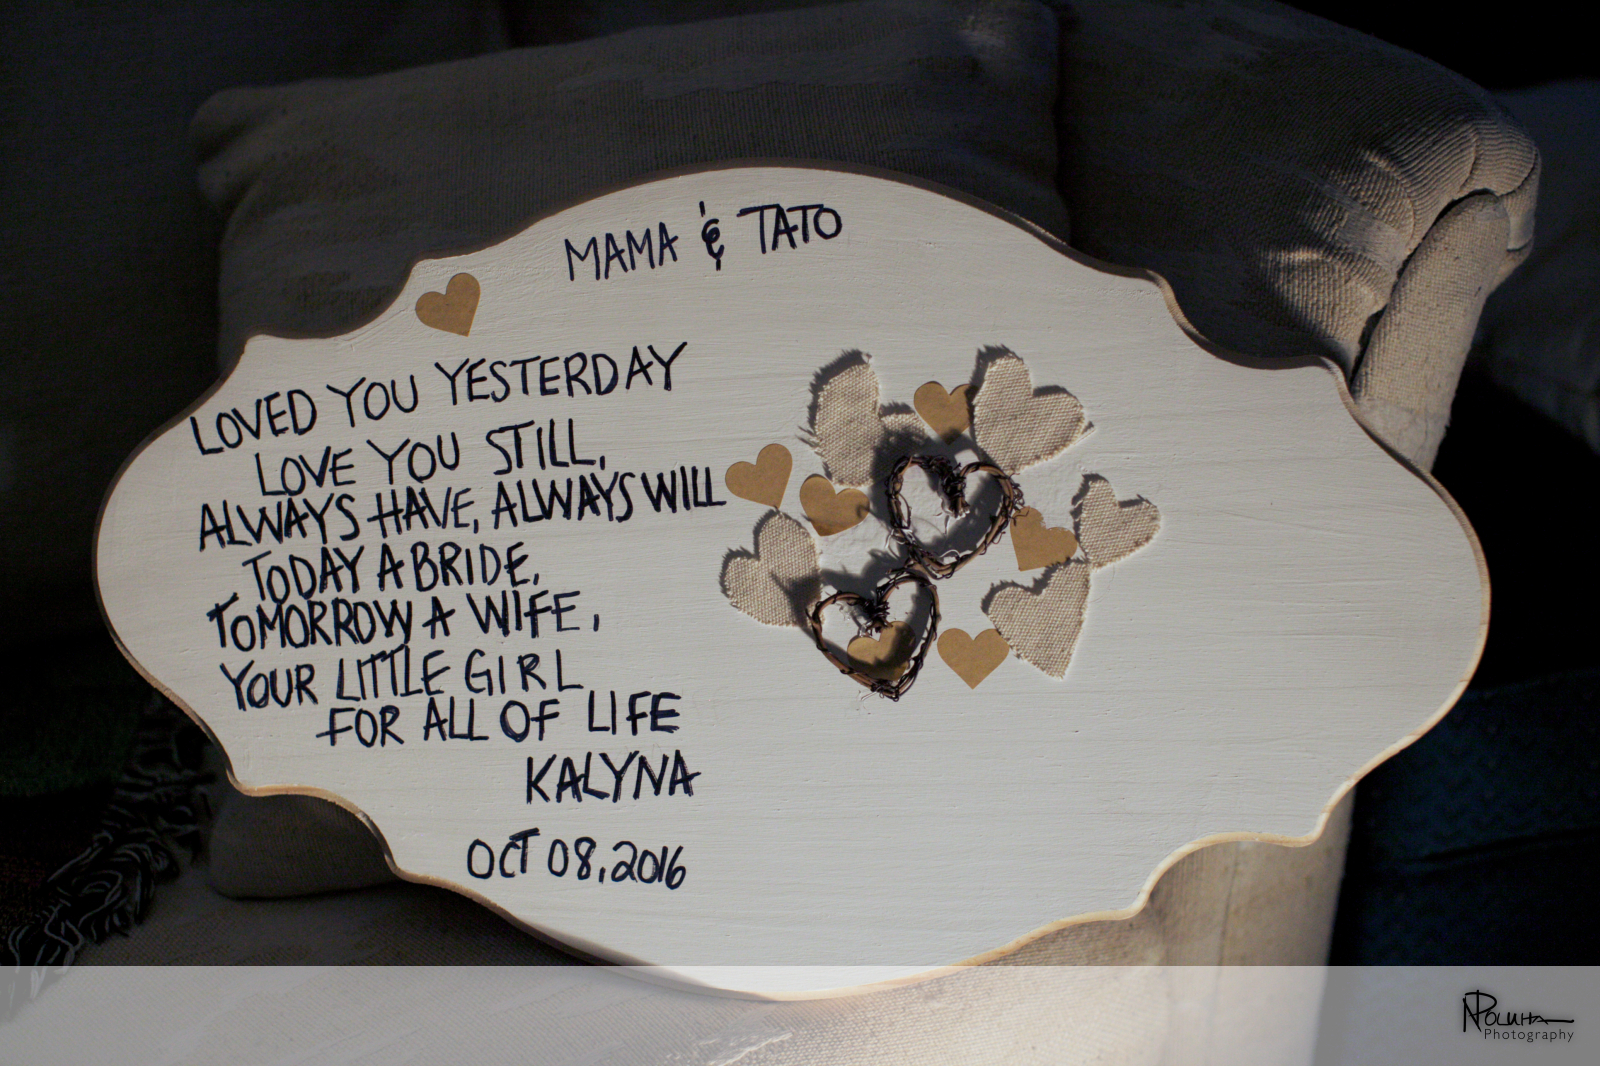 MAMA & TATO
LOVED YOU YESTERDAY
LOVE YOU STILL,
ALWAYS HAVE, ALWAYS WILL
TODAY A BRIDE,
TOMORROW A WIFE,
YOUR LITTLE GIRL
FOR ALL OF LIFE
KALYNA
OCT 08, 2016
NPoluha
Photography